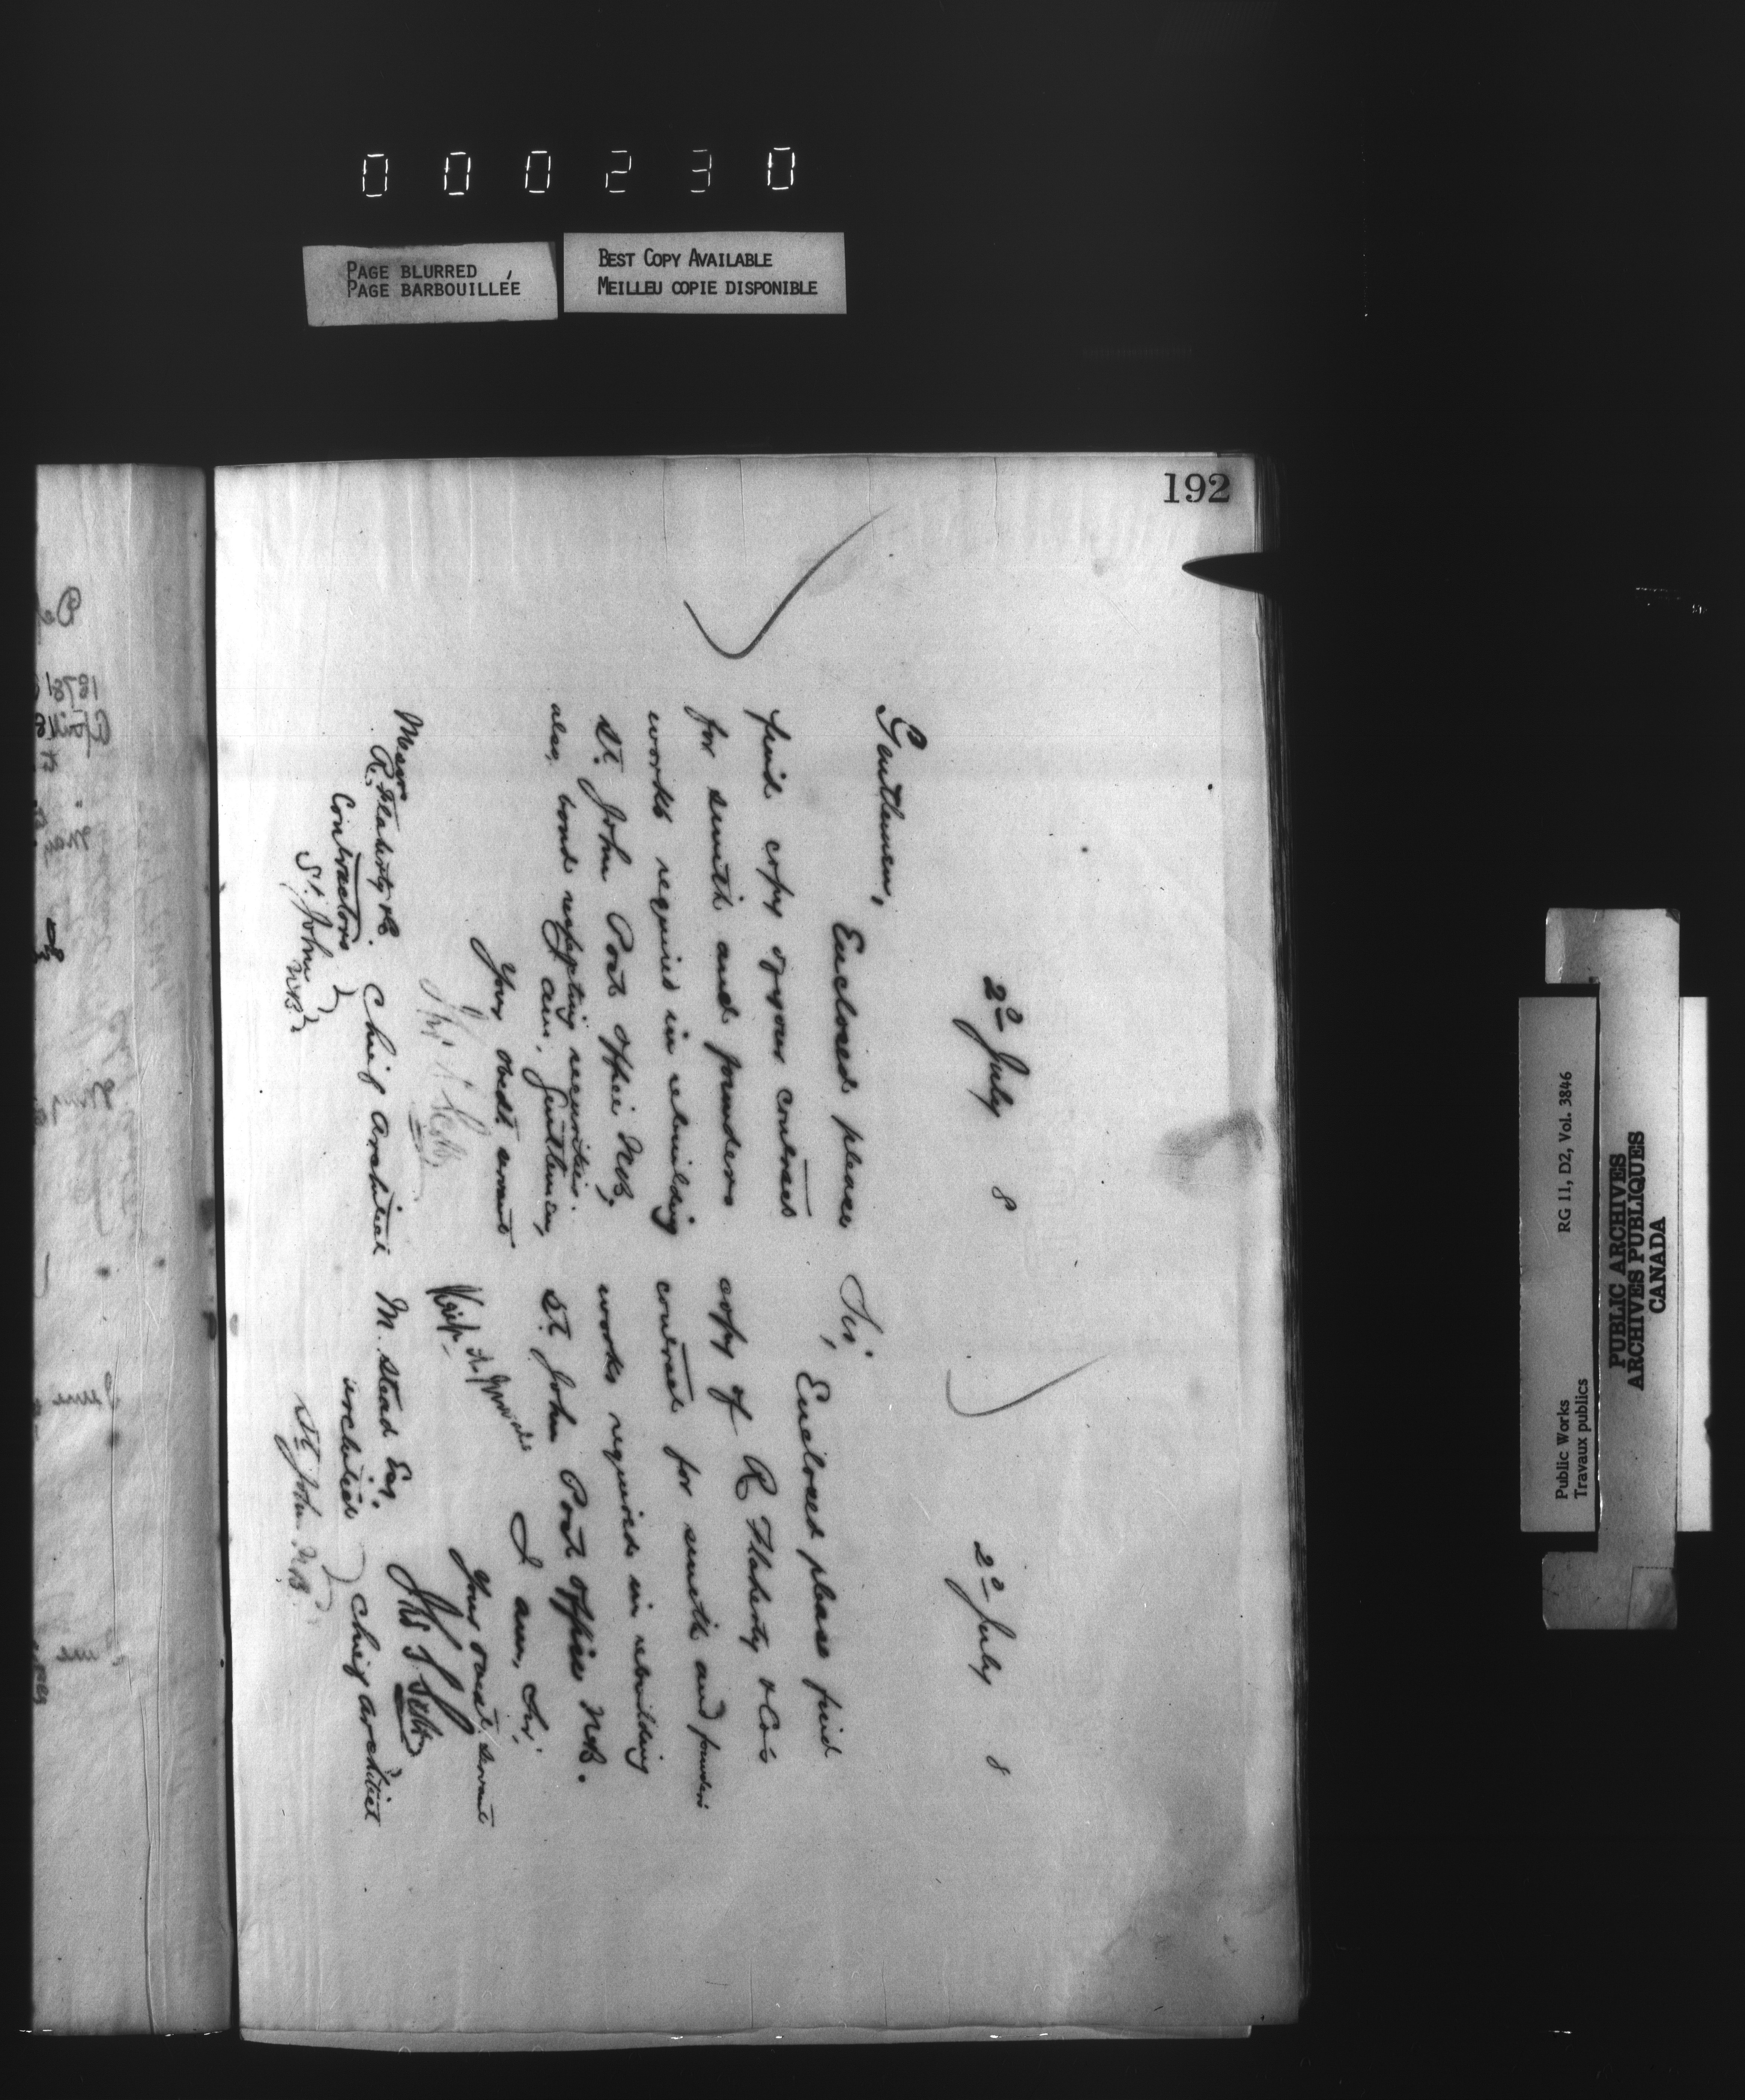 000230
PAGE BLURRED
PAGE BARBOUILLÉE
BEST COPY AVAILABLE
MEILLEU COPIE DISPONIBLE
192
2º July 8
Gentlemen,
Enclosed please
find copy of your contract
for smith and founders
works required in rebuilding
St. John Post office N.B,
also, bond respecting securities.
I am, Gentlemen,
Your obedt servant
Chief Architect
Messrs
R. Flaherty & Co.
Contractors
St. John
N.B.
2º July 8
Sir,
Enclosed please find
copy of R Flaherty & Co's
contract for smith and founders
works required in rebuilding
St. John Post office N.B.
I am, Sir,
Your obedt servant
Chief Architect
M. Stead Esq.
architect
St. John N.B.
Public Works
Travaux publics
RG 11, D2, Vol. 3846
PUBLIC ARCHIVES
ARCHIVES PUBLIQUES
CANADA